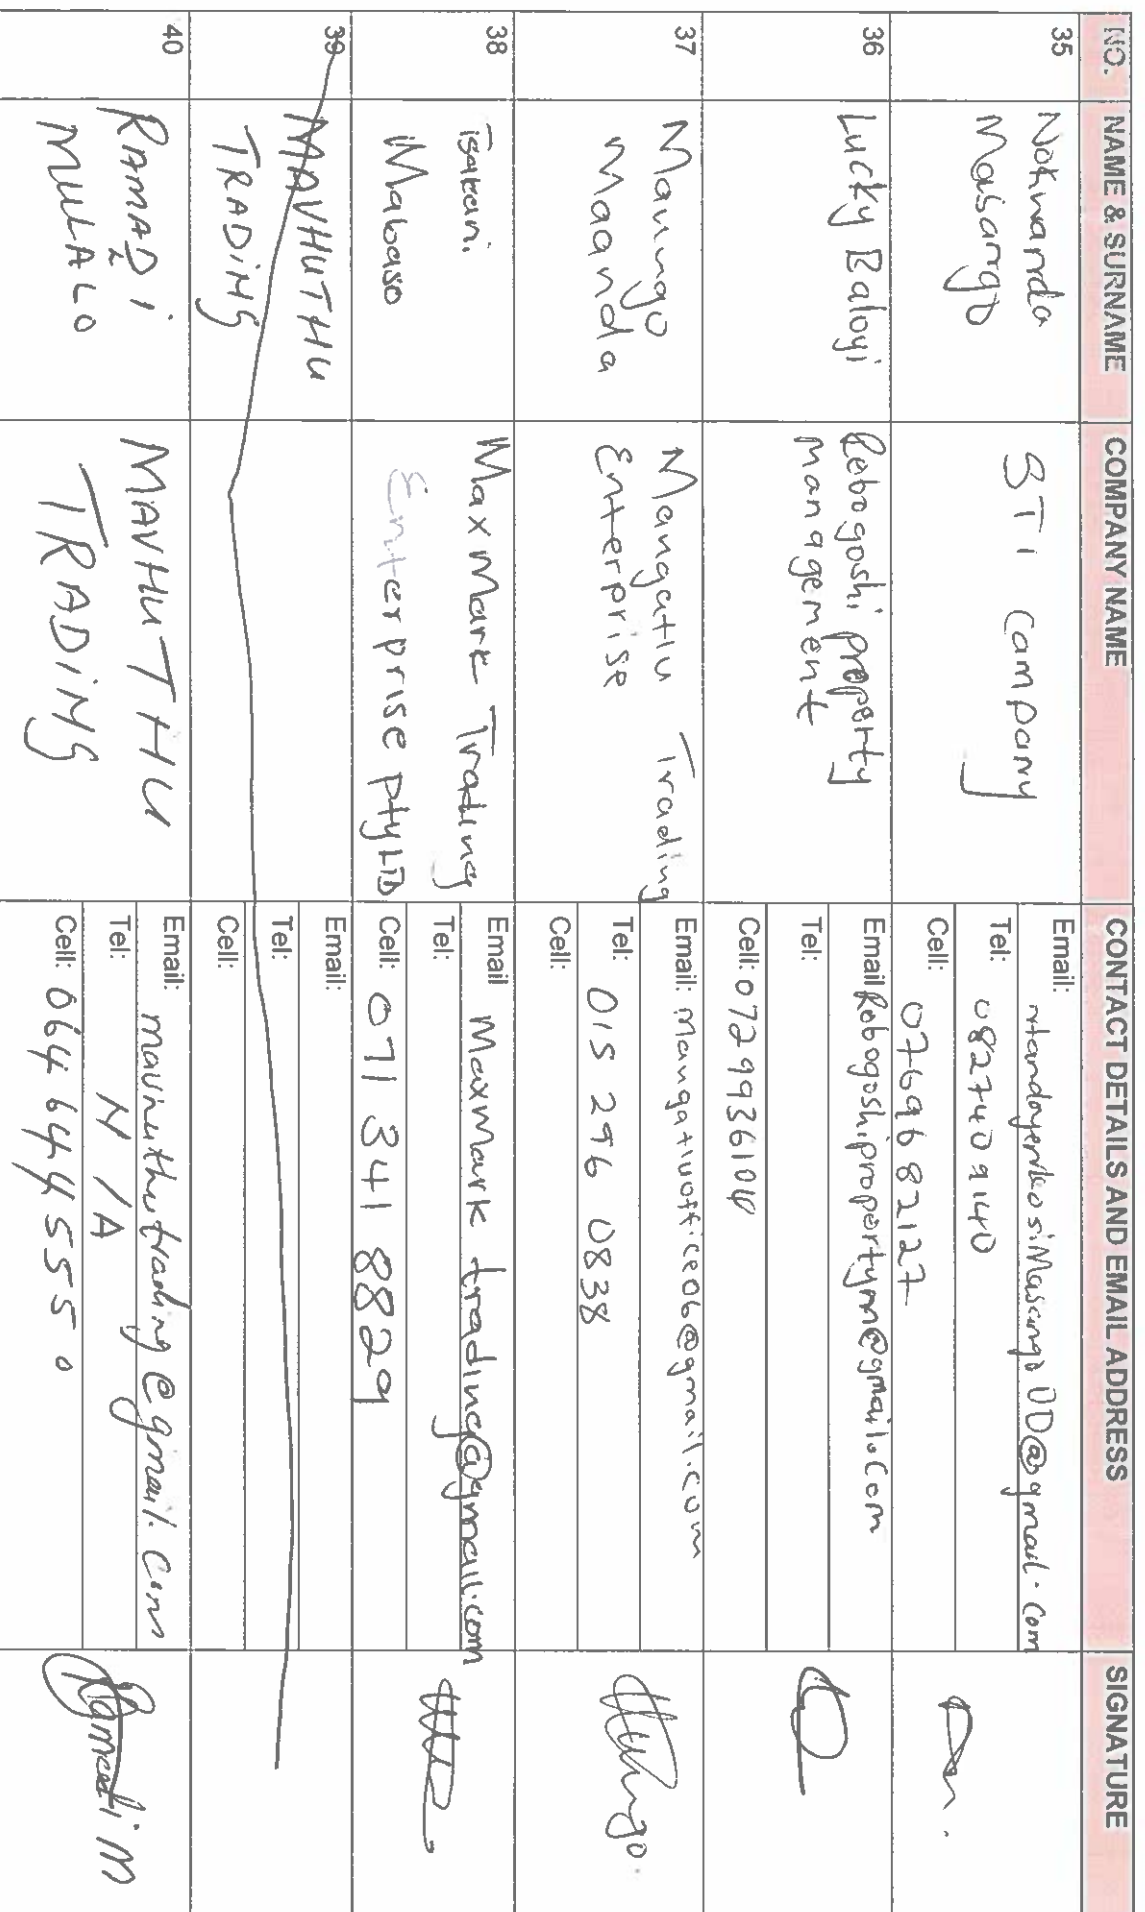 NO. NAME & SURNAME COMPANY NAME CONTACT DETAILS AND EMAIL ADDRESS SIGNATURE
35
Nokwanda
Masango
STI Company
Email:
Tel: 0827409140
Cell: 0769682127
36
Lucky Baloyi
Rebogoshi property
management
Email Rebogoshipropertym@gmail.com
Tel:
Cell: 
37
Manngo
Maanda
Mangatlu Trading
Enterprise
Email: mangatluoffice06@gmail.com
Tel: 015 296 0838
Cell:
38
Tsakani
Mabaso
MaxMark Trading
Enterprise Pty LTD
Email MaxMark trading@gmail.com
Tel:
Cell: 071 341 8829
39
MAVHUTHU
TRADING
Email:
Tel:
Cell:
40
RAMADI
MULALO
MAVHUTHU
TRADING
Email: mavhuthutrading@gmail.com
Tel: N/A
Cell: 064 644 5550
Ramadi M